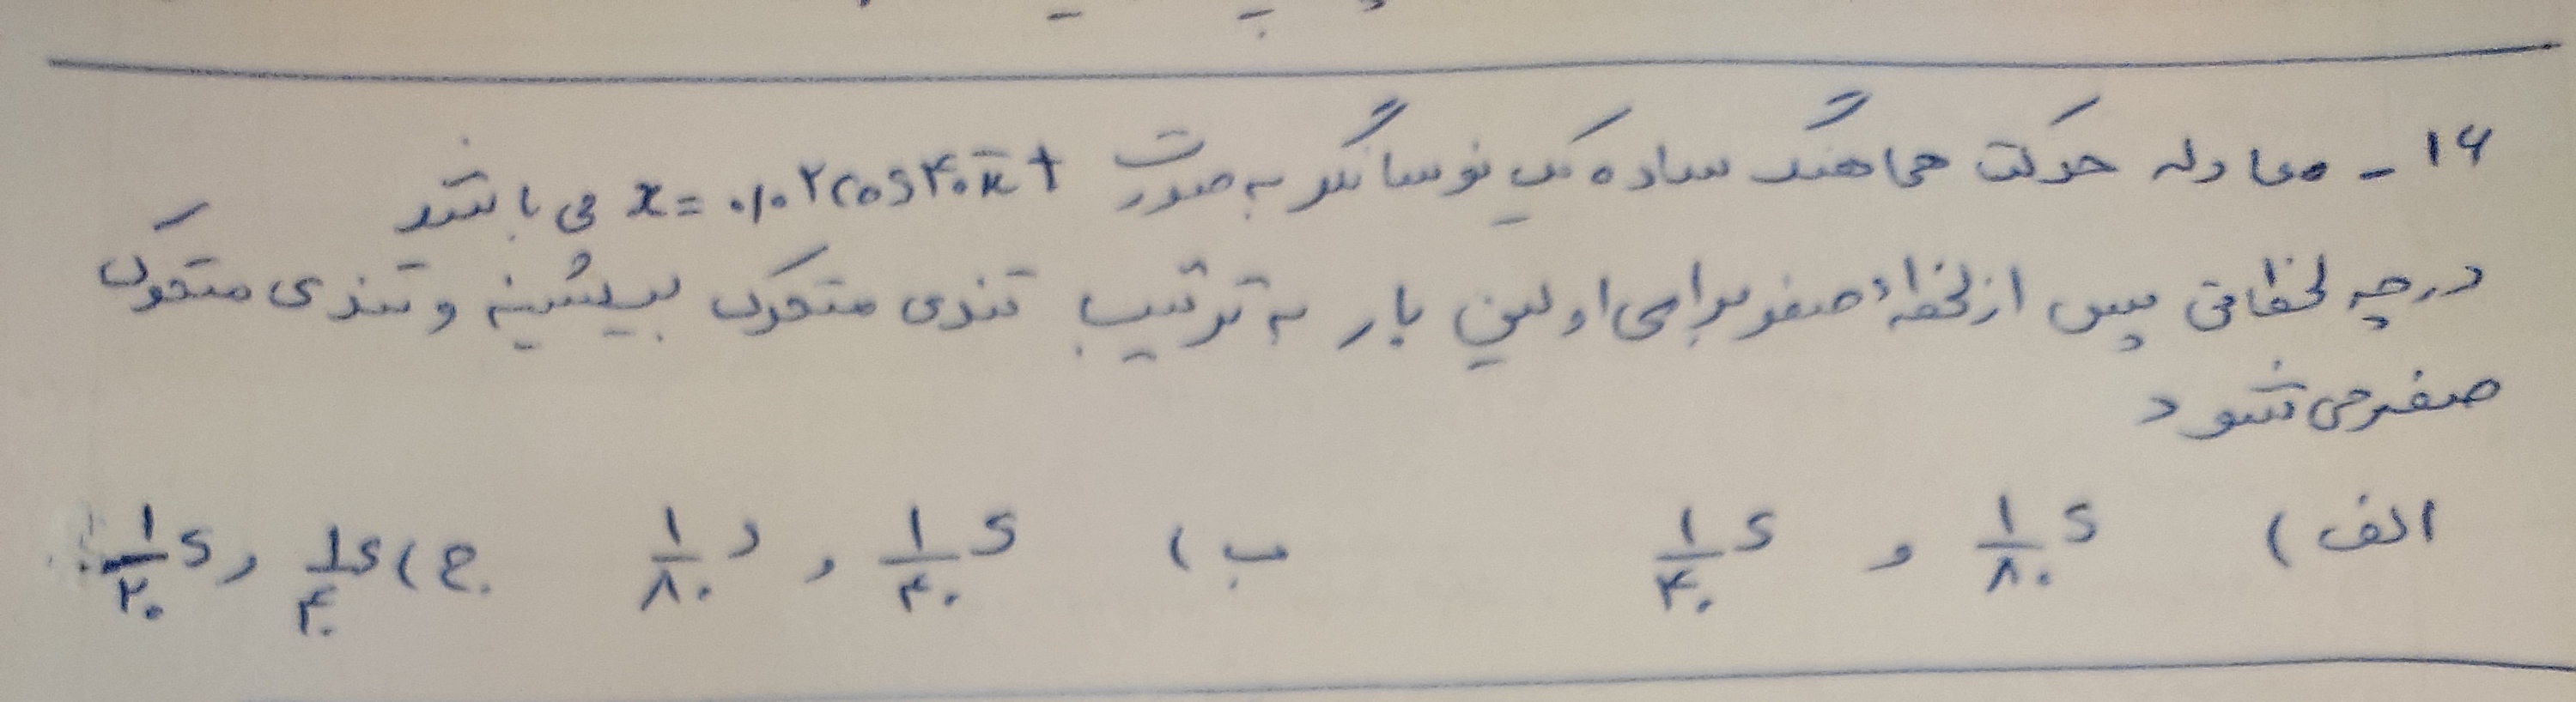 ۱۶ - معادله حرکت هماهنگ ساده یک نوسانگر به صورت x = ۰/۰۲ cos ۴۰πt می باشد
درچه لحظاتی پس از لحظهٔ صفر برای اولین بار به ترتیب تندی متحرک بیشینه و تندی متحرک
صفر می شود
الف) ۱/۸۰ s و ۱/۴۰ s ب) ۱/۴۰ s و ۱/۸۰ s ج) ۱/۴۰ s و ۱/۲۰ s